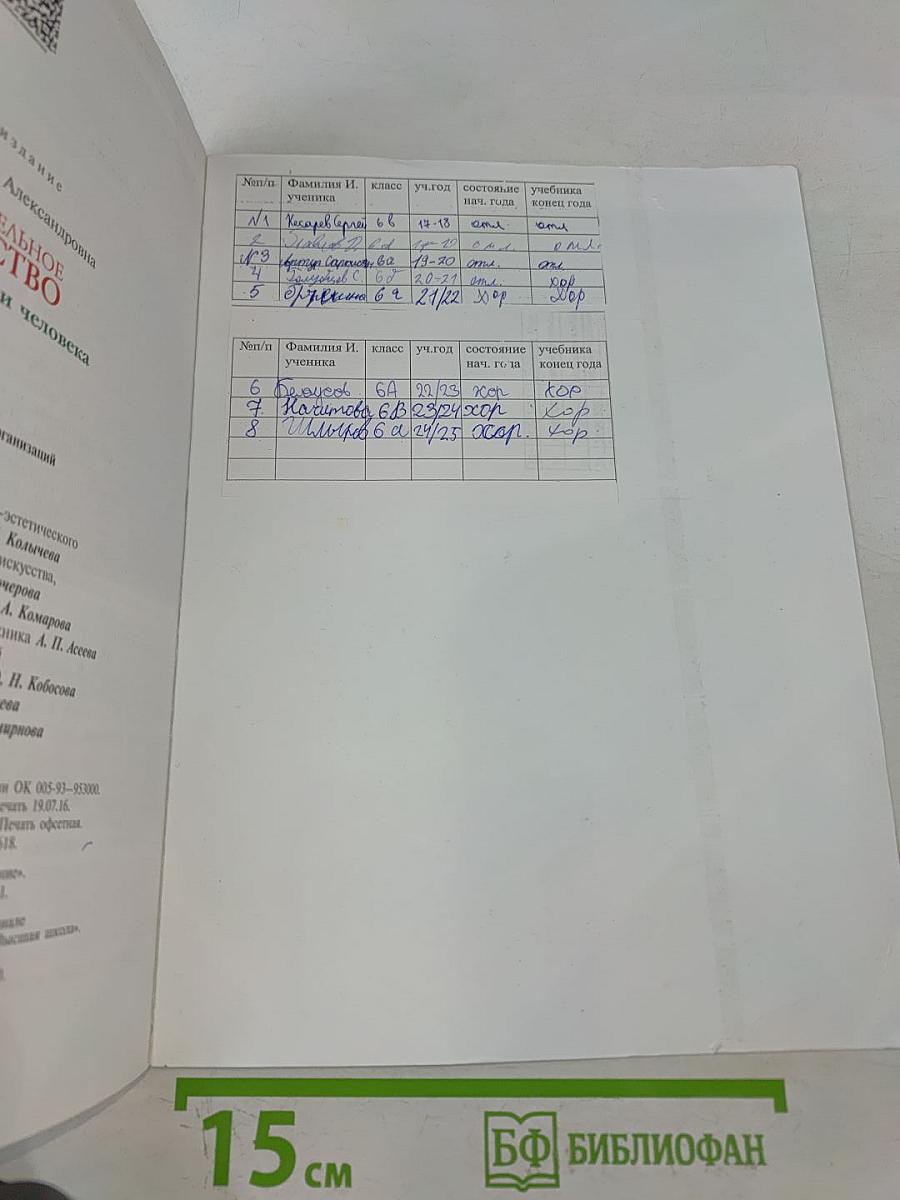 издание
Александровна
ЕЛЬНОЕ
СТВО
и человека
организаций
-эстетического
Колычева
искусства,
А. Комарова
А. П. Асеева
Н. Кобосова
ева
мирнова
ОК 005-93–953000.
19.07.16.
Печать офсетная.
618.
№п/п Фамилия И. ученика класс уч.год состояние нач. года учебника конец года
№1 Кесарев Сергей 6в 17-18 отл. отл
2 отл. отл.
№3 Артур 6а 19-20 отл. отл.
4 С. 6б 20-21 отл. хор
5 6а 21/22 Хор Хор
№п/п Фамилия И. ученика класс уч.год состояние нач. года учебника конец года
6 Белоусов 6А 22/23 хор хор
7 6В 23/24 хор хор
8 Шлыков 6а 24/25 хор. хор
15 см
БФ БИБЛИОФАН